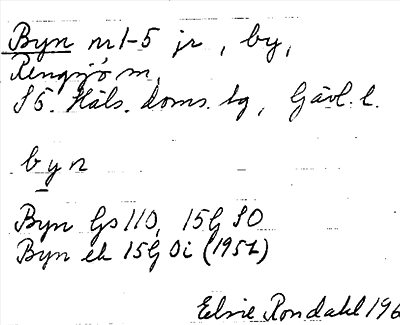 Byn nr 1-5 jr, by,
Rengsjö sn,
S ö. Häls. doms. tg, Gävl. l.
byn
Byn Gs 110, 15G SO
Byn ek 15G 0i (1957)
Elsie Rondahl 196